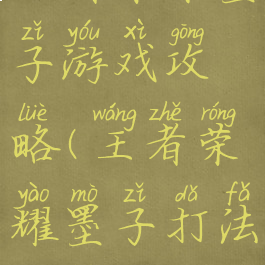 zǐ yóu xì gōng
子游戏攻
lüè wáng zhě róng
略(王者荣
yào mò zǐ dǎ fǎ
耀墨子打法